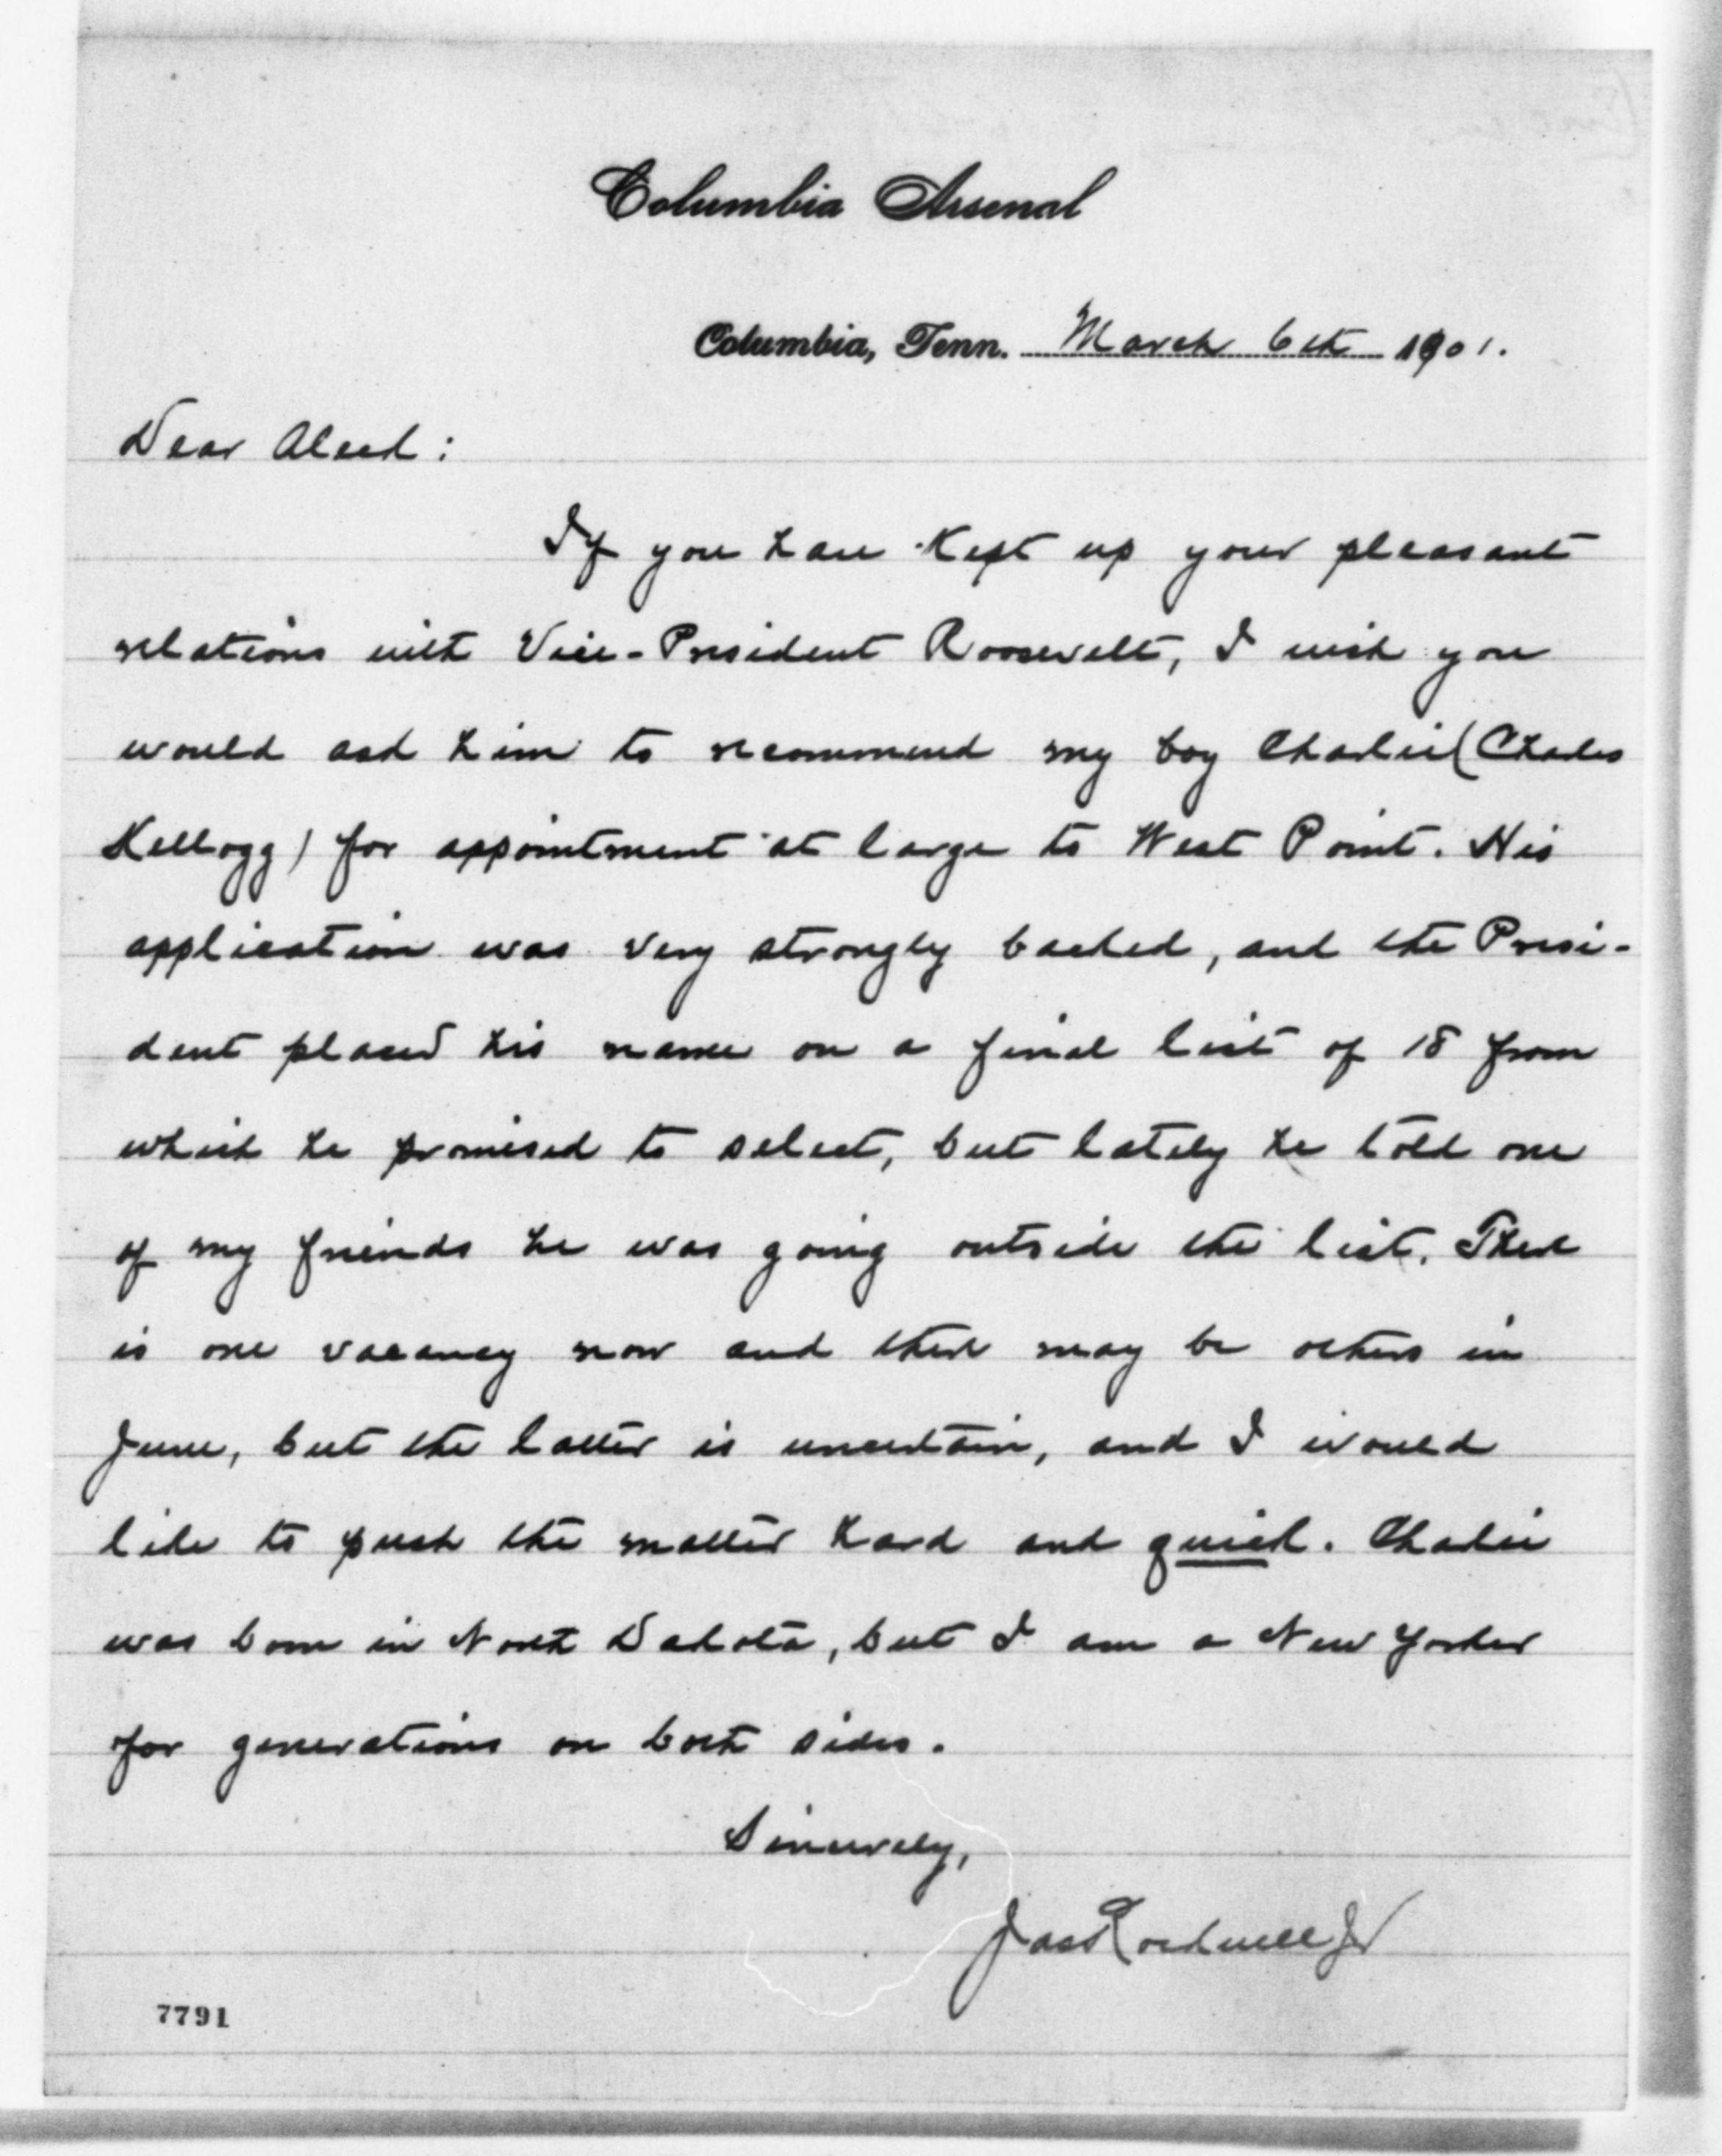 Columbia Arsenal
Columbia, Tenn. March 6th 1901.
Dear
If you have Kept up your pleasant
relations with Vice-President Roosevelt, I wish you
would ask him to recommend my boy Charlie (Charles
Kellogg) for appointment at large to West Point. His
application was very strongly backed, and the Presi-
dent placed his name on a final list of 18 from
which he promised to select, but lately he told one
of my friends he was going outside the list. There
is one vacancy now and there may be others in
June, but the latter is uncertain, and I would
like to push the matter hard and quick. Charlie
was born in North Dakota, but I am a New Yorker
for generations on both sides.
Sincerely,
Jas Rockwell Jr
7791